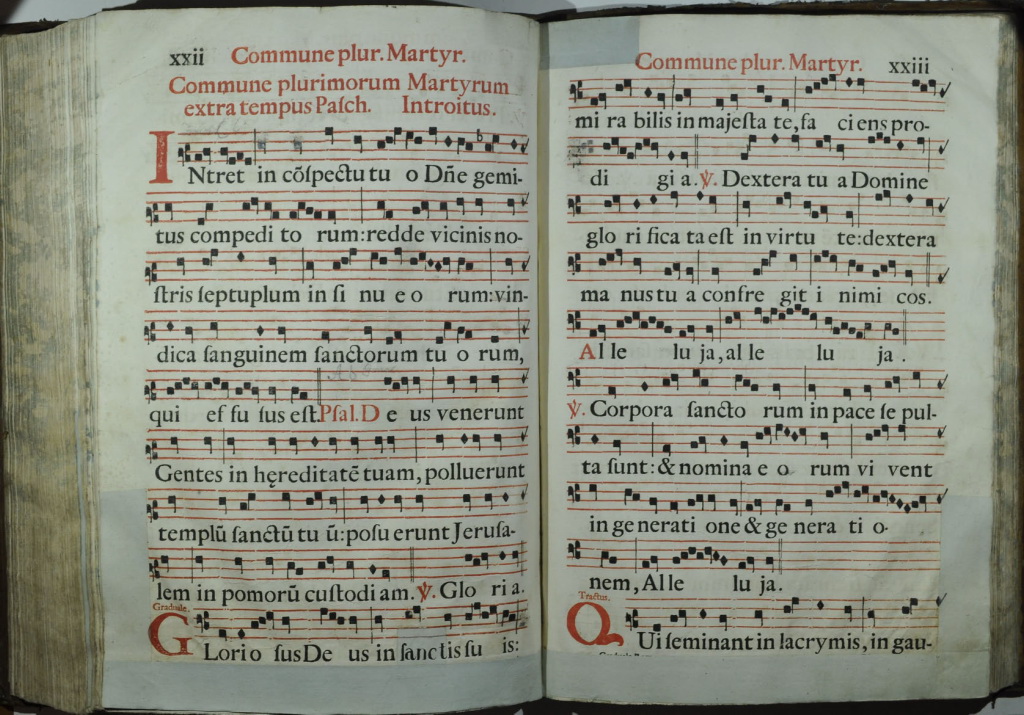 xxii Commune plur. Martyr.
Commune plurimorum Martyrum
extra tempus Paſch. Introitus.
INtret in cõſpectu tu o Dñe gemi-
tus compedi to rum: redde vicinis no-
ſtris ſeptuplum in ſi nu e o rum: vin-
dica ſanguinem ſanctorum tu o rum,
qui ef fu ſus eſt. Pſal. D e us venerunt
Gentes in hęreditatē tuam, polluerunt
templū ſanctū tu ū: poſu erunt Jeruſa-
lem in pomorū cuſtodi am. ℣. Glo ri a.
Graduale.
GLorio ſus De us in ſanctis ſu is:
Commune plur. Martyr. xxiii
mi ra bilis in majeſta te, fa ci ens pro-
di gi a. ℣. Dextera tu a Domine
glo ri fica ta eſt in virtu te: dextera
ma nus tu a confre git i nimi cos.
Al le lu ja, al le lu ja.
℣. Corpora ſancto rum in pace ſe pul-
ta ſunt: & nomina e o rum vi vent
in ge nerati one & ge nera ti o-
nem, Al le lu ja.
Tractus.
QUi ſeminant in lacrymis, in gau-